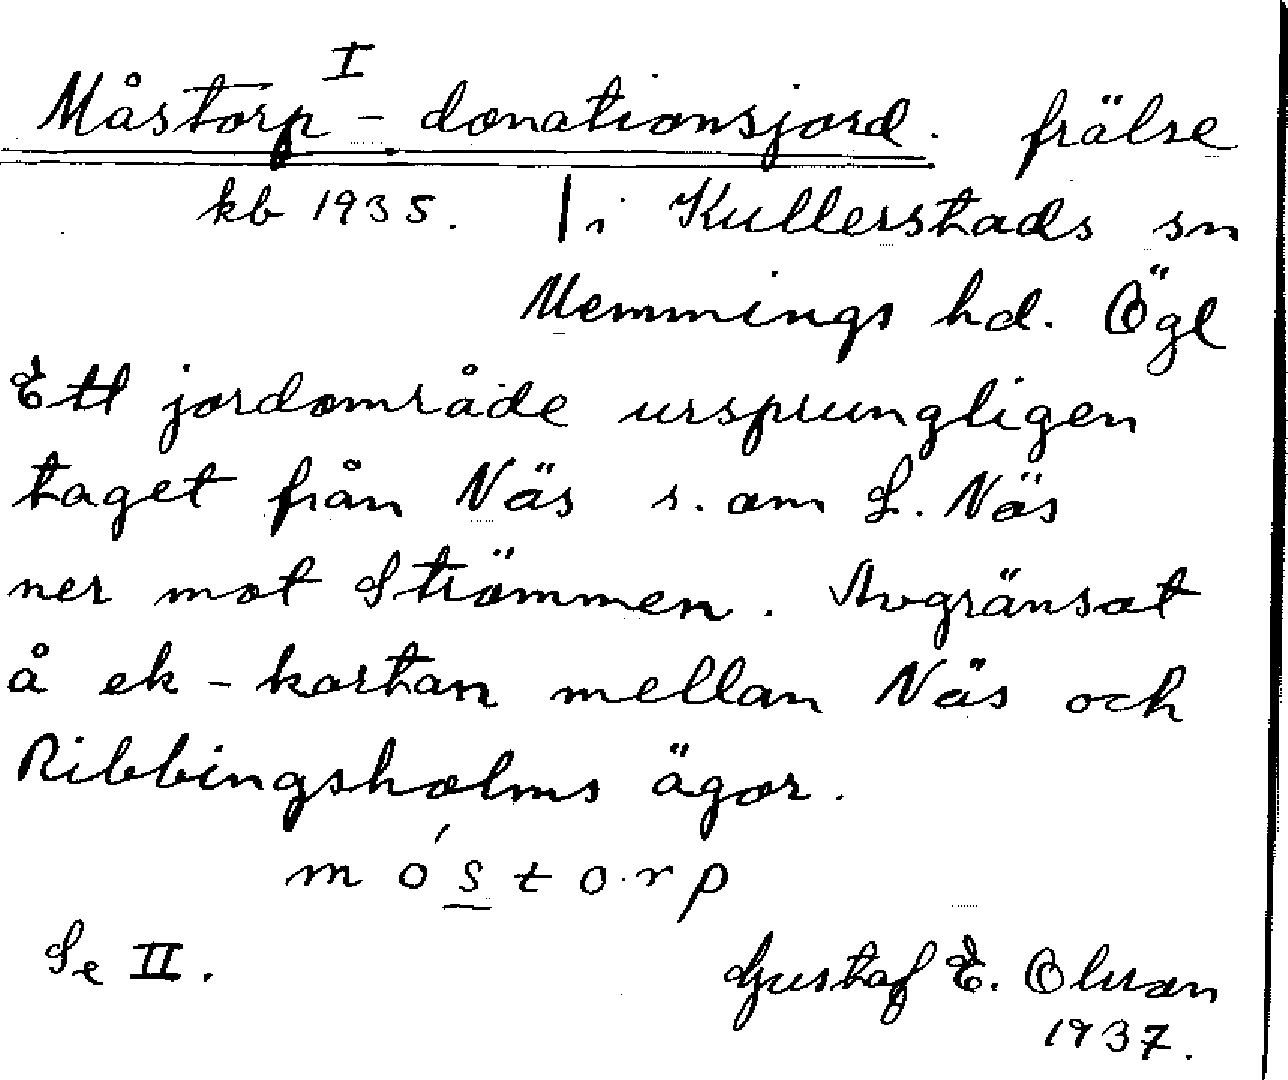 I
Måstorp - donationsjord. frälse
kb 1935. | i Kullerstads sn
Memmings hd. Ögl
Ett jordområde ursprungligen
taget från Näs s. om L. Näs
ner mot Strömmen. Avgränsat
å ek-kartan mellan Näs och
Ribbingsholms ägor.
móstorp
Se II.
Gustaf E. Olsson
1937.